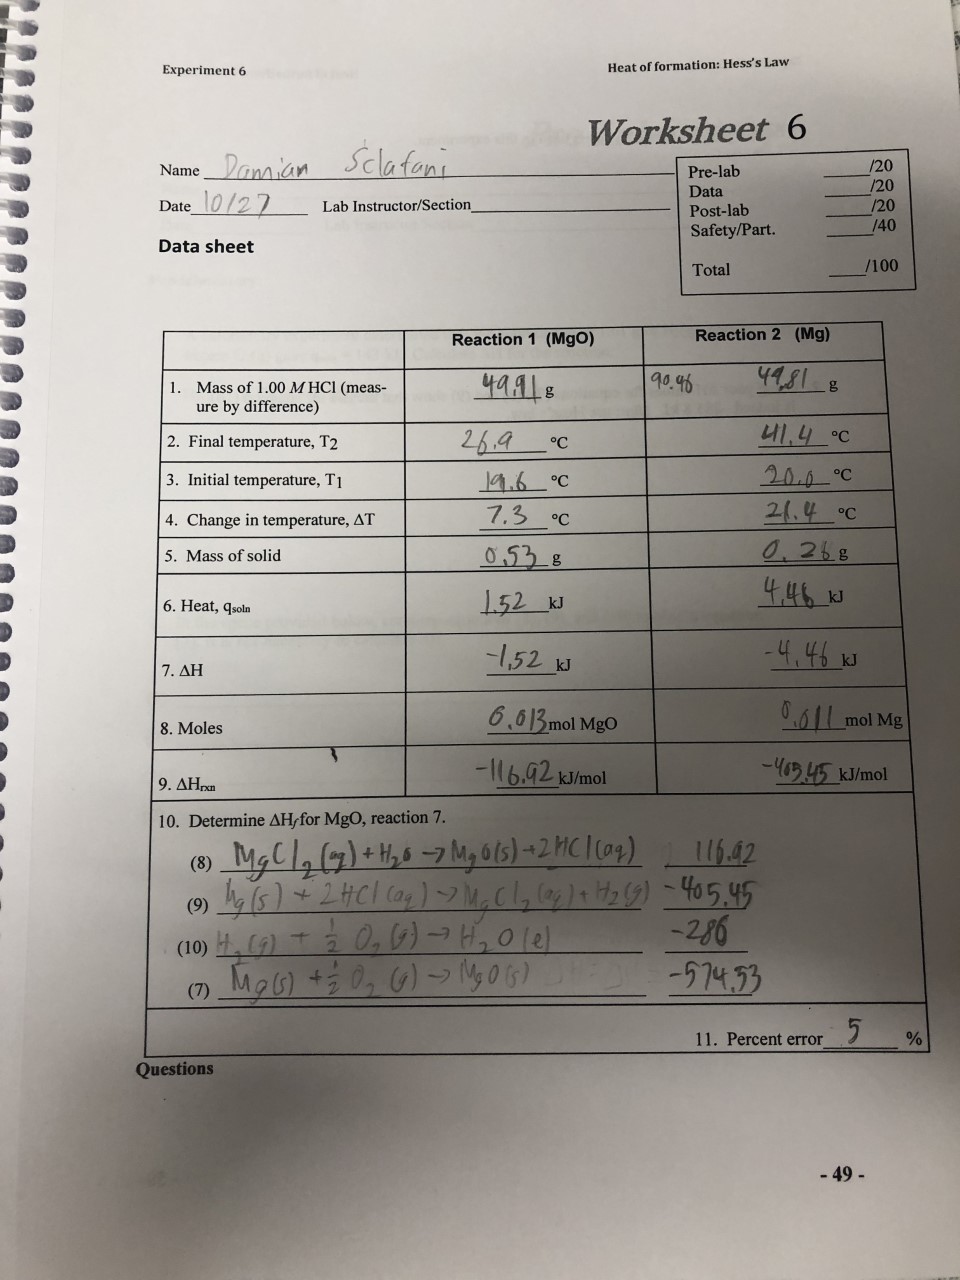 Experiment 6
Heat of formation: Hess's Law
Worksheet 6
Name Damian Sclafani
Date 10/27 Lab Instructor/Section
Pre-lab /20
Data /20
Post-lab /20
Safety/Part. /40
Total /100
Data sheet
Reaction 1 (MgO) Reaction 2 (Mg)
1. Mass of 1.00 M HCl (meas- 49.91 g 90.46 49.81 g
ure by difference)
2. Final temperature, T2 26.9 °C 41.4 °C
3. Initial temperature, T1 19.6 °C 20.0 °C
4. Change in temperature, ΔT 7.3 °C 21.4 °C
5. Mass of solid 0.53 g 0.26 g
6. Heat, qsoln 1.52 kJ 4.46 kJ
7. ΔH -1.52 kJ -4.46 kJ
8. Moles 0.013 mol MgO 0.011 mol Mg
9. ΔHrxn -116.92 kJ/mol -405.45 kJ/mol
10. Determine ΔHf for MgO, reaction 7.
(8) MgCl2(aq) + H2O → MgO(s) + 2HCl(aq) 116.92
(9) Mg(s) + 2HCl(aq) → MgCl2(aq) + H2(g) -405.45
(10) H2(g) + 1/2 O2(g) → H2O(l) -286
(7) Mg(s) + 1/2 O2(g) → MgO(s) -574.53
11. Percent error 5 %
Questions
- 49 -